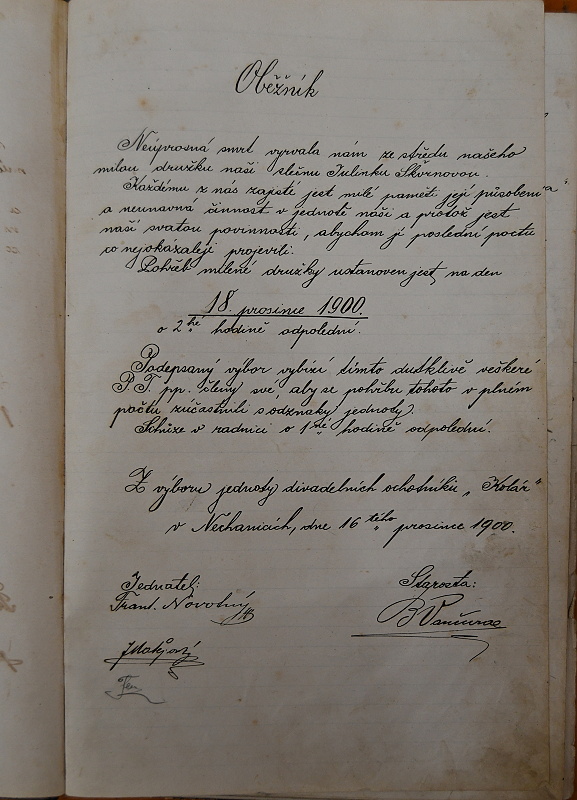 Oběžník
Neúprosná smrt vyrvala nám ze středu našeho
milou družku naši slečnu Julinku Škvrnovou.
Každému z nás zajisté jest milé paměti její působení
a neunavná činnost v jednotě naší a protož jest
naší svatou povinností, abychom jí poslední poctu
co nejokázaleji projevili.
Pohřeb milené družky ustanoven jest, na den
18. prosince 1900.
o 2hé hodině odpolední.
Podepsaný výbor vybízí tímto dutklivě veškeré
P. T. pp. členy své, aby se pohřbu tohoto v plném
počtu zúčastnili s odznaky jednoty.
Schůze v radnici o 1hé hodině odpolední.
Z výboru jednoty divadelních ochodníků „Kolár"
v Nechanicích, dne 16tého prosince 1900.
Jednatel:
Starosta:
Frant. Novotný
B Vančura